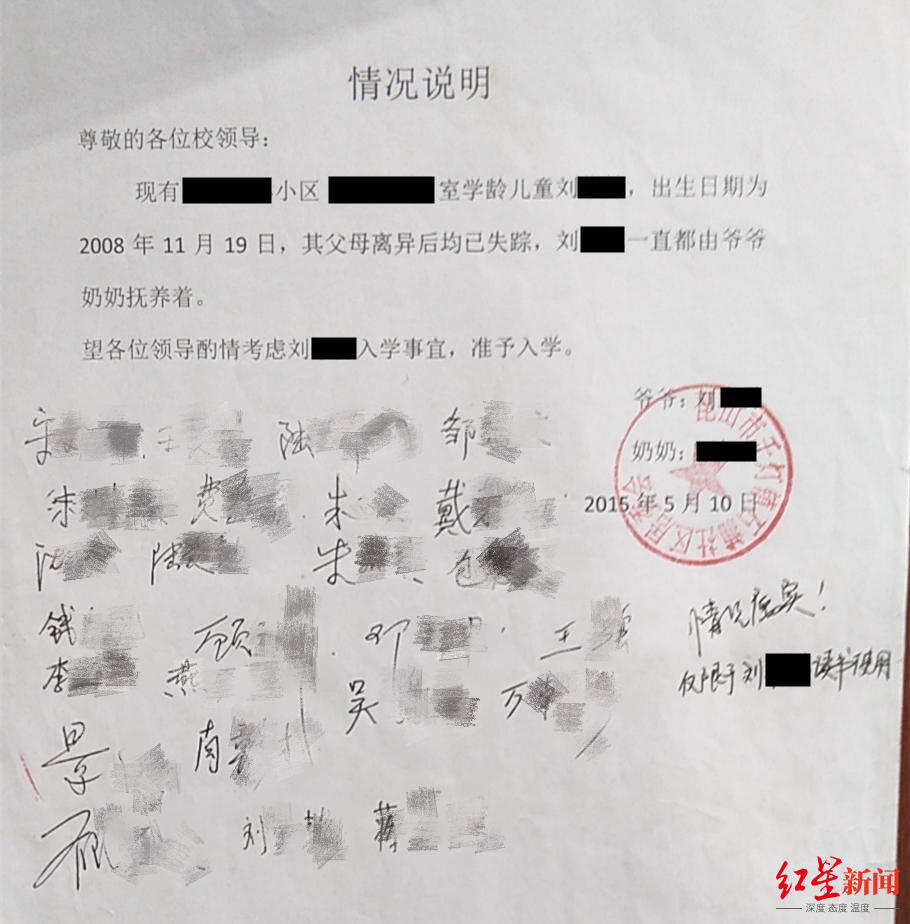 情况说明
尊敬的各位校领导：
现有 小区 室学龄儿童刘 ，出生日期为
2008 年 11 月 19 日，其父母离异后均已失踪，刘 一直都由爷爷
奶奶抚养着。
望各位领导酌情考虑刘 入学事宜，准予入学。
爷爷：刘
奶奶：
2015 年 5 月 10 日
昆山市千灯镇石浦社区居委会
王 陆 邹
朱 费 朱 戴
沈 陆 朱 包
钱 顾 邓 王
李 燕 吴 万
景
刘 蒋
情况属实！
仅限于刘 读书使用
红星新闻
深度 态度 温度